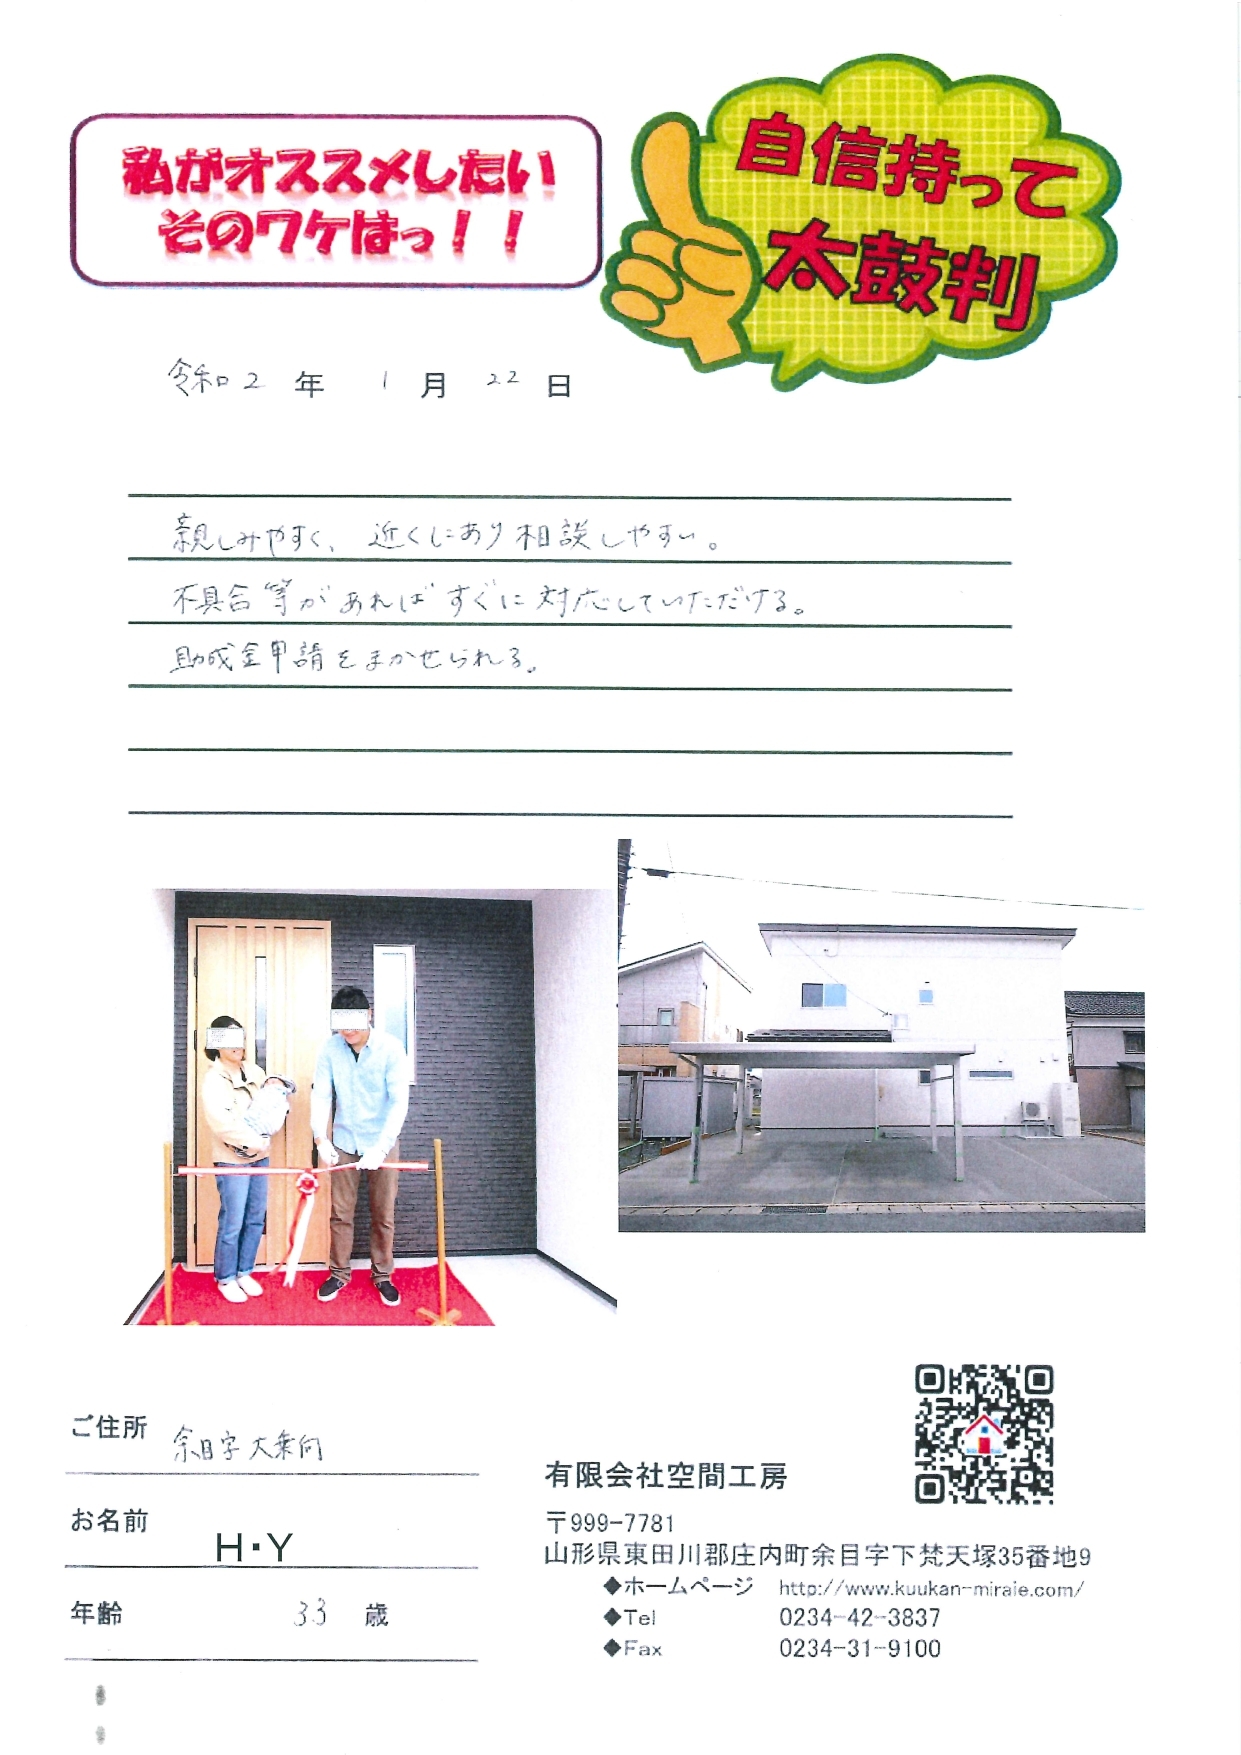 私がオススメしたい
そのワケはっ！！
自信持って
太鼓判
令和2 年 1 月 22 日
親しみやすく、近くにあり相談しやすい。
不具合等があればすぐに対応していただける。
助成金申請をまかせられる。
ご住所 余目字大乗向
お名前 H・Y
年齢 33 歳
有限会社空間工房
〒999-7781
山形県東田川郡庄内町余目字下梵天塚35番地9
◆ホームページ http://www.kuukan-miraie.com/
◆Tel 0234-42-3837
◆Fax 0234-31-9100